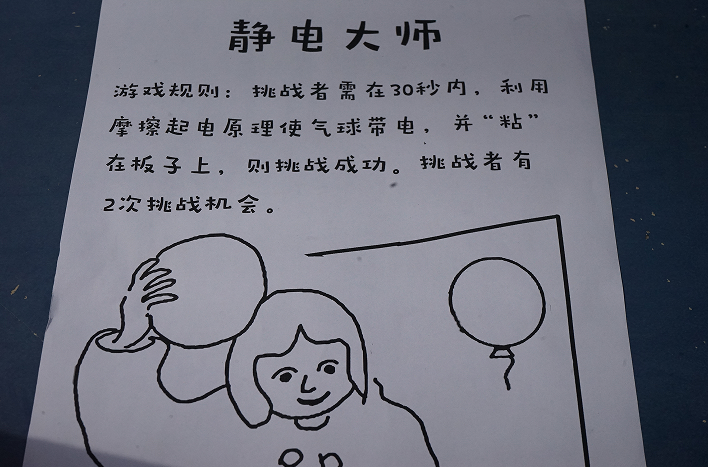 静电大师
游戏规则：挑战者需在30秒内，利用
摩擦起电原理使气球带电，并“粘”
在板子上，则挑战成功。挑战者有
2次挑战机会。